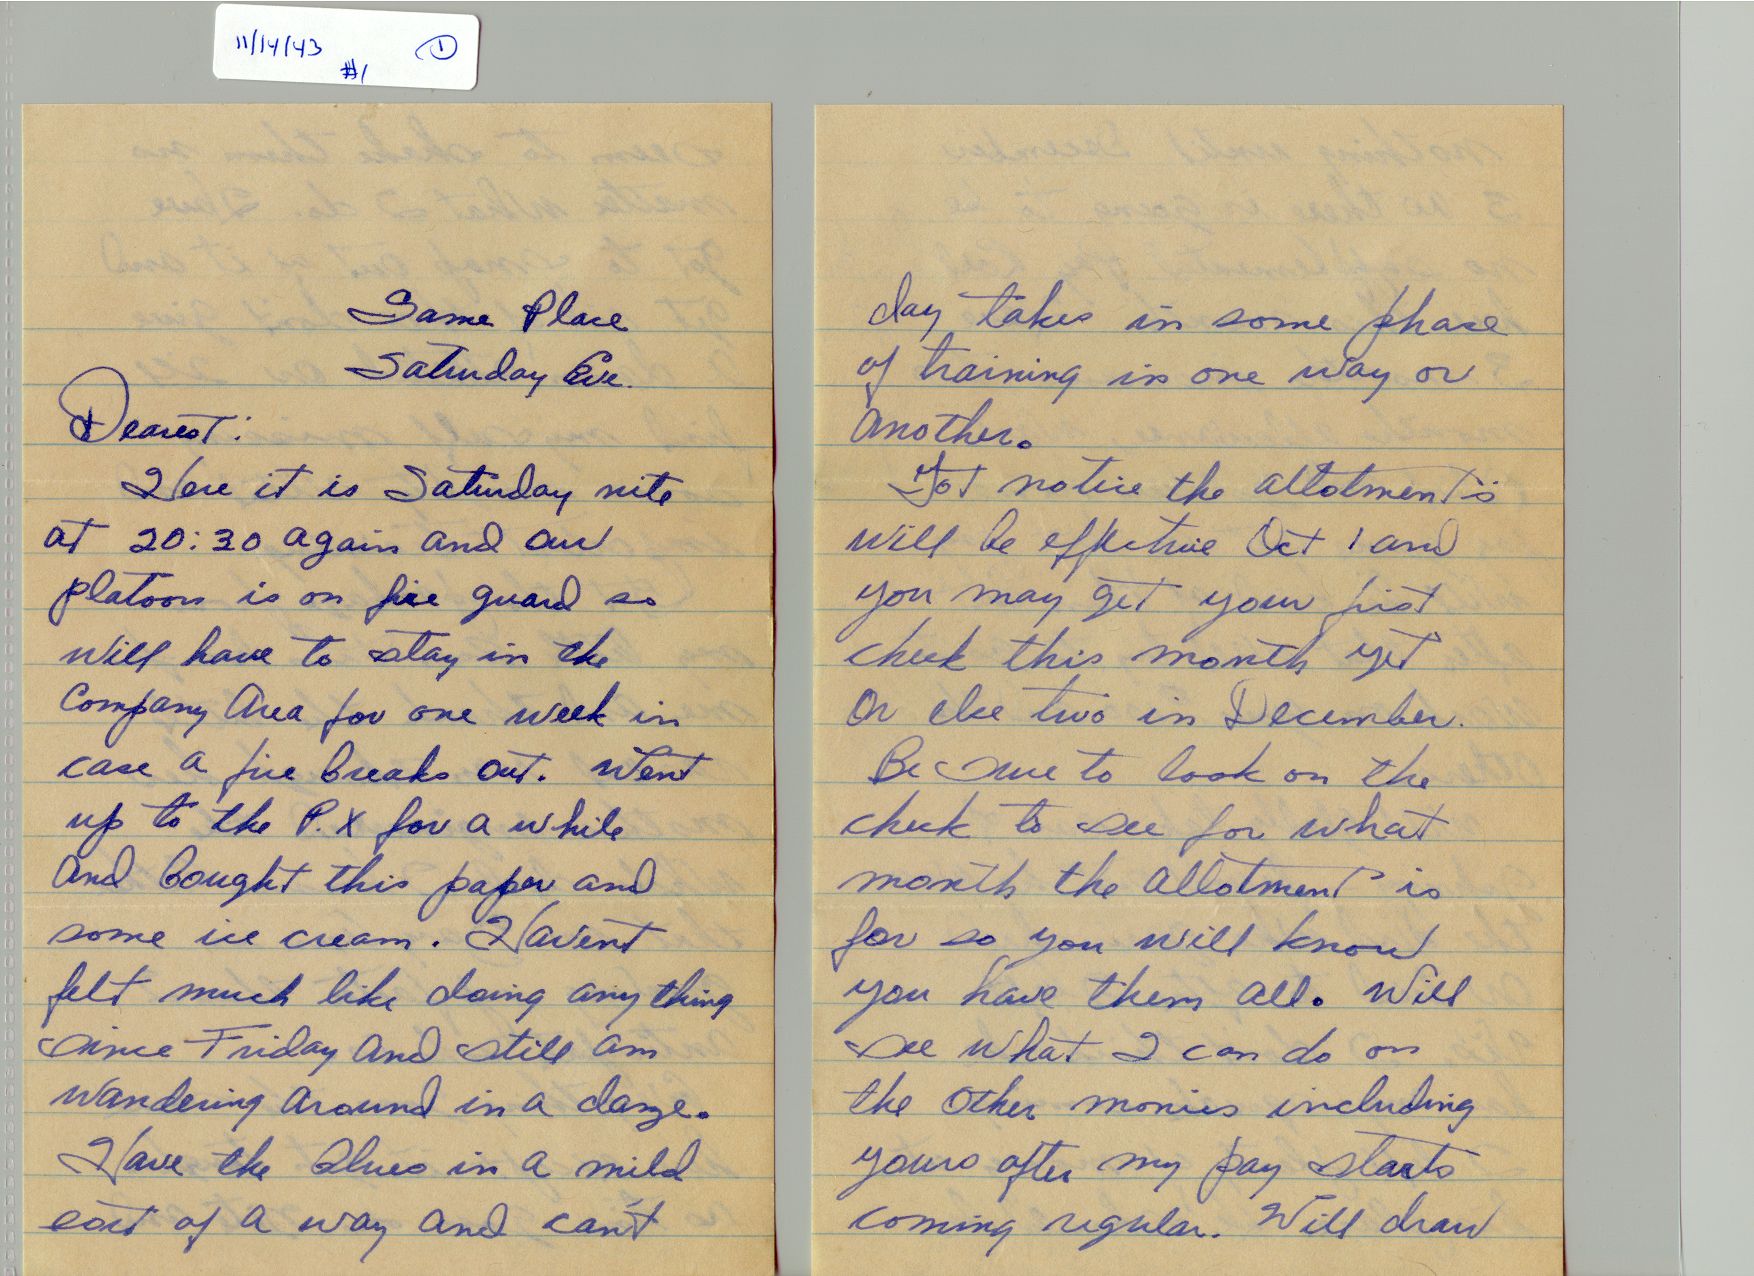 11/14/43 ①
#1
Same Place
Saturday Eve.
Dearest:
Here it is Saturday nite
at 20:30 again and our
platoon is on fire guard so
will have to stay in the
Company Area for one week in
case a fire breaks out. Went
up to the P.X for a while
and bought this paper and
some ice cream. Havent
felt much like doing anything
since Friday and still am
wandering around in a daze.
Have the blues in a mild
sort of a way and can't
day takes in some phase
of training in one way or
another.
Got notice the allotment's
will be effective Oct 1 and
you may get your first
check this month yet
or else two in December.
Be sure to look on the
check to see for what
month the allotment is
for so you will know
you have them all. Will
see what I can do on
the other monies including
yours after my pay starts
coming regular. Will draw